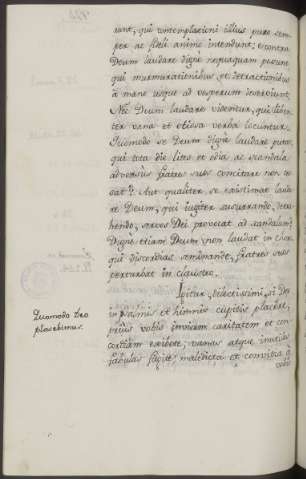 dant, qui contemplationi illius puro sem-
per ac fideli animo intendunt; e contra
Deum laudare digne nequaquam possunt
qui murmurationibus, et detractionibus
a mane usque ad vesperum inserviunt.
Nec Deum laudare videntur, qui liben-
ter vana et otiosa verba locuntur.
Quomodo se Deum digne laudare putat,
qui tota die lites et odia, ac scandala
adversus fratres suos concitare non ces-
sat? Aut qualiter se existimat lauda-
re Deum, qui jugiter susurrando, detra-
hendo, servos Dei provocat ad scandalum?
Digne etiam Deum non laudat in choro
qui discordias seminando, fratres suos
perturbat in claustro.
Igitur, dilectissimi, si Deo
in psalmis et himnis cupitis placere,
prius vobis invicem caritatem et con-
cordiam exibete; vanas atque inutiles
fabulas fugite, maledicta et convitia a
vobis
Quomodo Deo
placebimus.